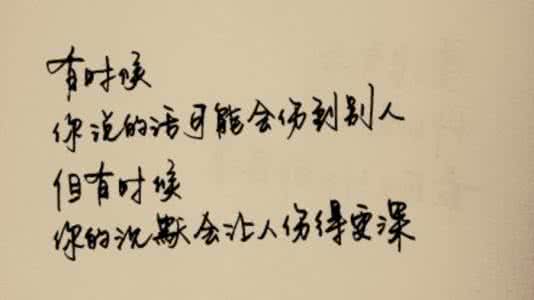 有时候
你说的话可能会伤到别人
但有时候
你的沉默会让人伤得更深